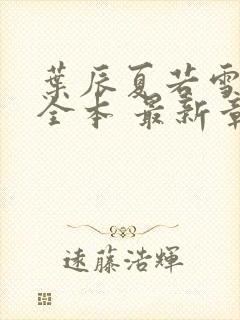 葉辰夏若雪
全本 最新章
遠藤浩輝